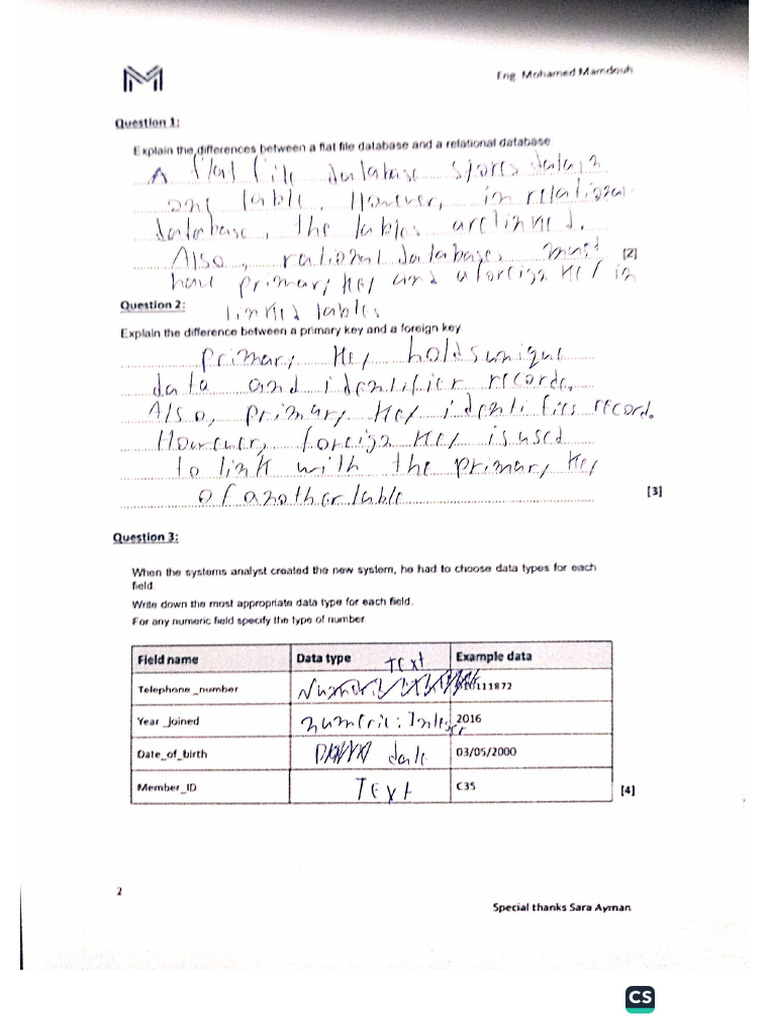 Eng. Mohamed Mamdouh
Question 1:
Explain the differences between a flat file database and a relational database.
A flat file database stores data in
one table. However, in relational
database, the tables are linked.
Also, rational databases must [2]
have primary key and a foreign key in
linked tables
Question 2:
Explain the difference between a primary key and a foreign key
primary key holds unique
data and identifier records.
Also, primary key identifies record.
However, foreign key is used
to link with the primary key
of another table [3]
Question 3:
When the systems analyst created the new system, he had to choose data types for each
field.
Write down the most appropriate data type for each field.
For any numeric field specify the type of number.
Field name Data type Example data
Telephone _number Text 111872
Year _joined numeric: Integer 2016
Date_of_birth date 03/05/2000
Member_ID Text C35 [4]
2
Special thanks Sara Ayman
CS